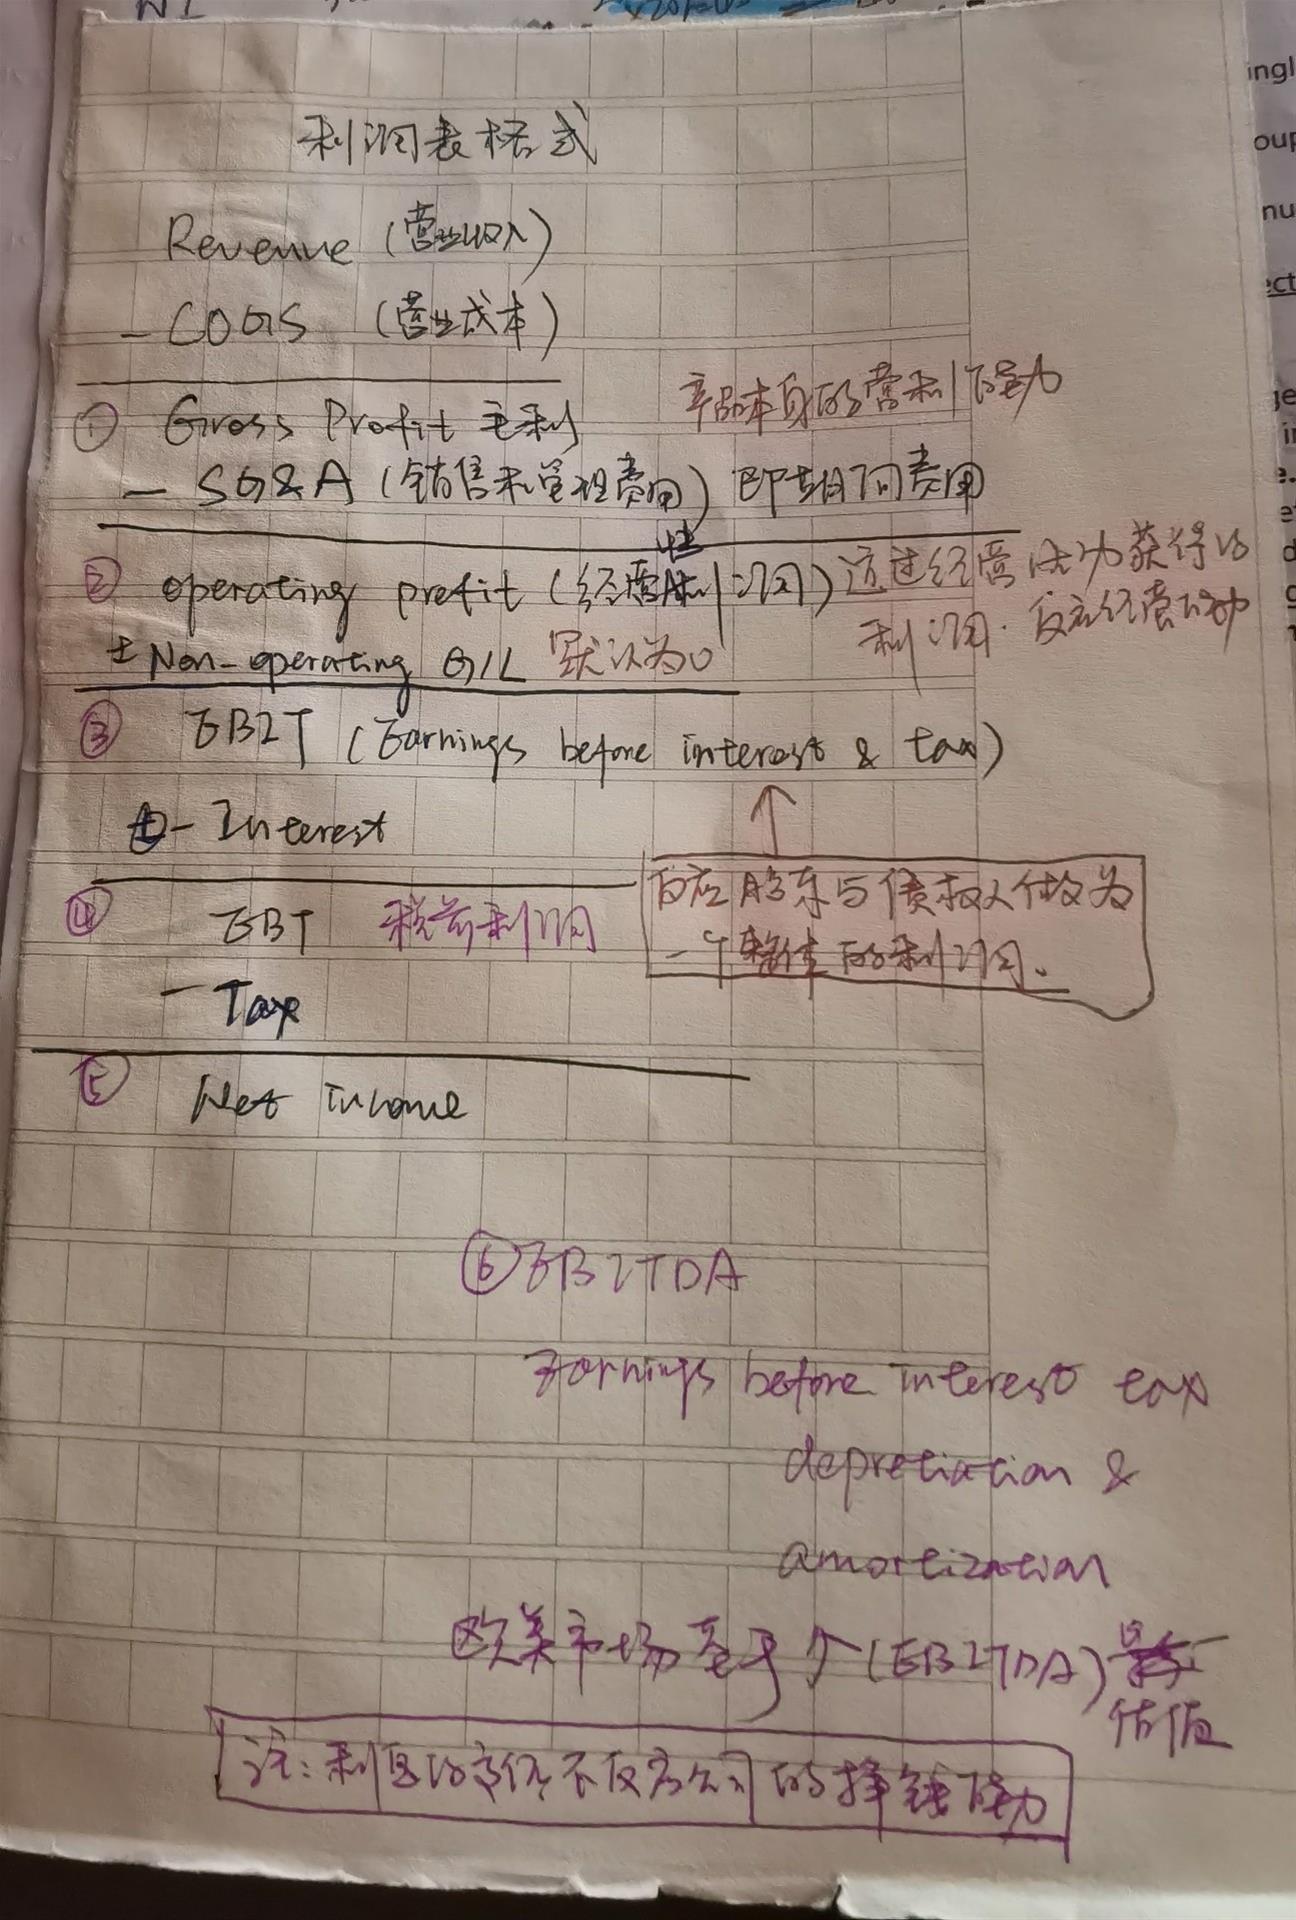 利润表格式
Revenue (营业收入)
- COGS (营业成本)
产品本身的营利能力
① Gross Profit 毛利
- SG&A (销售和管理费用) 即期间费用
② operating profit (经营性利润) 通过经营活动获得的
利润. 反应经营活动
± Non-operating G/L 默认为0
③ EBIT (Earnings before interest & tax)
- Interest
反应股东与债权人做为
一个整体的利润.
④ EBT 税前利润
- Tax
⑤ Net income
⑥ EBITDA
Earnings before interest tax
depretiation &
amortization
欧美市场基于个(EBITDA)
估值
注: 利息的高低不反应公司的挣钱能力